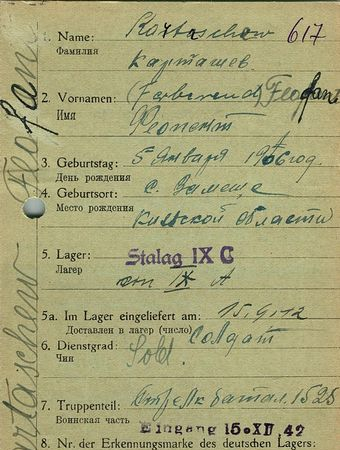 1. Name: Kartaschew 617
Фамилия Карташев
2. Vornamen: Feofan
Имя
3. Geburtstag: 5 Января 1906 год
День рождения
4. Geburtsort: с.
Место рождения Киевской области
5. Lager: Stalag IX C
Лагер IX A
5a. Im Lager eingeliefert am: 15.9.42
Доставлен в лагер (число)
6. Dienstgrad: Sold. Солдат
Чин
7. Truppenteil: батал. 1525
Воинская часть Eingang 15. XII 42
8. Nr. der Erkennungsmarke des deutschen Lagers:
Kartaschew Feofan